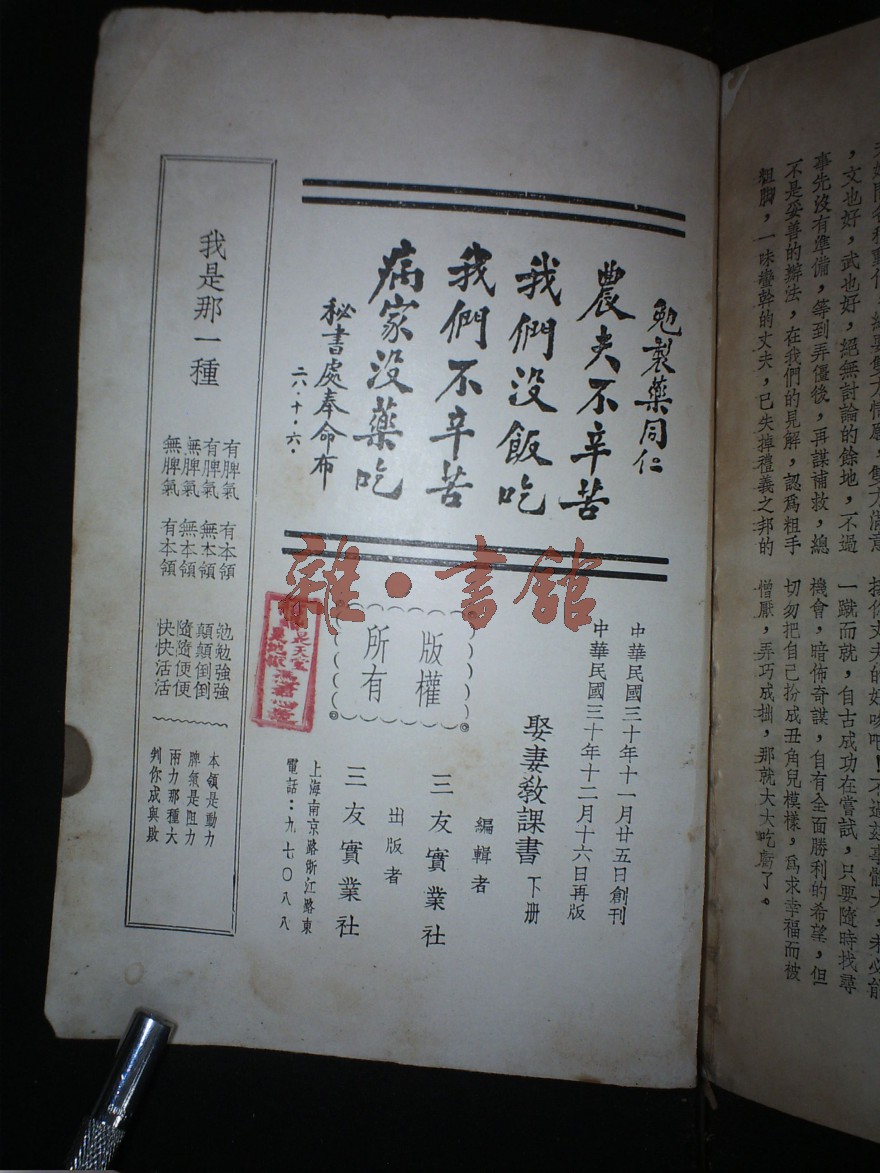 粗脚，一味蠻幹的丈夫，已失掉禮義之邦的
不是妥善的辦法，在我們的見解，認爲粗手
事先沒有準備，等到弄僵後，再謀補救，總
，文也好，武也好，絕無討論的餘地，不過
憎厭，弄巧成拙，那就大大吃虧了。
切勿把自己扮成丑角兒模樣，爲求幸福而被
機會，暗佈奇謀，自有全面勝利的希望，但
一蹴而就，自古成功在嘗試，只要隨時找尋
勉製藥同仁
農夫不辛苦
我們沒飯吃
我們不辛苦
病家沒藥吃
秘書處奉命布
二六．十．六．
中華民國三十年十一月廿五日創刊
中華民國三十年十二月十六日再版
娶妻教課書 下册
編輯者
三友實業社
出版者
三友實業社
上海南京路浙江路東
電話：九七〇八八
版權
所有
雜·書館
我是那一種
有脾氣 有本領 勉勉強強
有脾氣 無本領 顛顛倒倒
無脾氣 無本領 隨隨便便
無脾氣 有本領 快快活活
本領是動力
脾氣是阻力
兩力那種大
判你成與敗